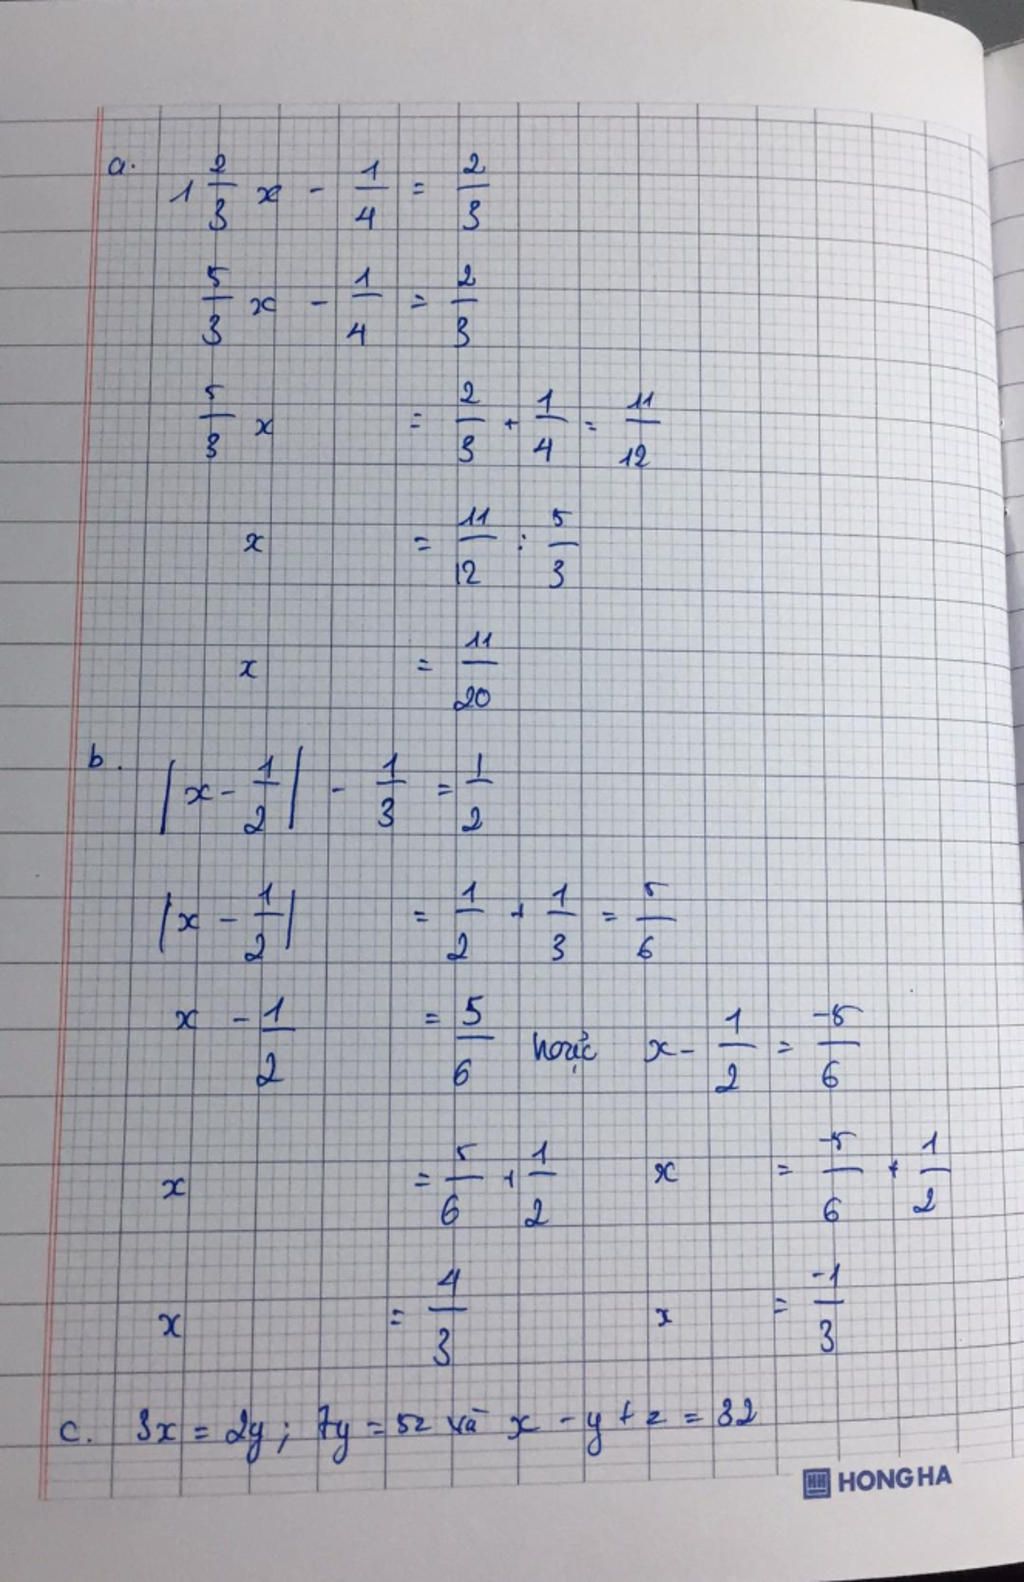 a. 1 2/3 x - 1/4 = 2/3
5/3 x - 1/4 = 2/3
5/3 x = 2/3 + 1/4 = 11/12
x = 11/12 : 5/3
x = 11/20
b. |x - 1/2| - 1/3 = 1/2
|x - 1/2| = 1/2 + 1/3 = 5/6
x - 1/2 = 5/6 hoặc x - 1/2 = -5/6
x = 5/6 + 1/2 x = -5/6 + 1/2
x = 4/3 x = -1/3
c. 3x = 2y ; 7y = 5z và x - y + z = 32
HONG HA